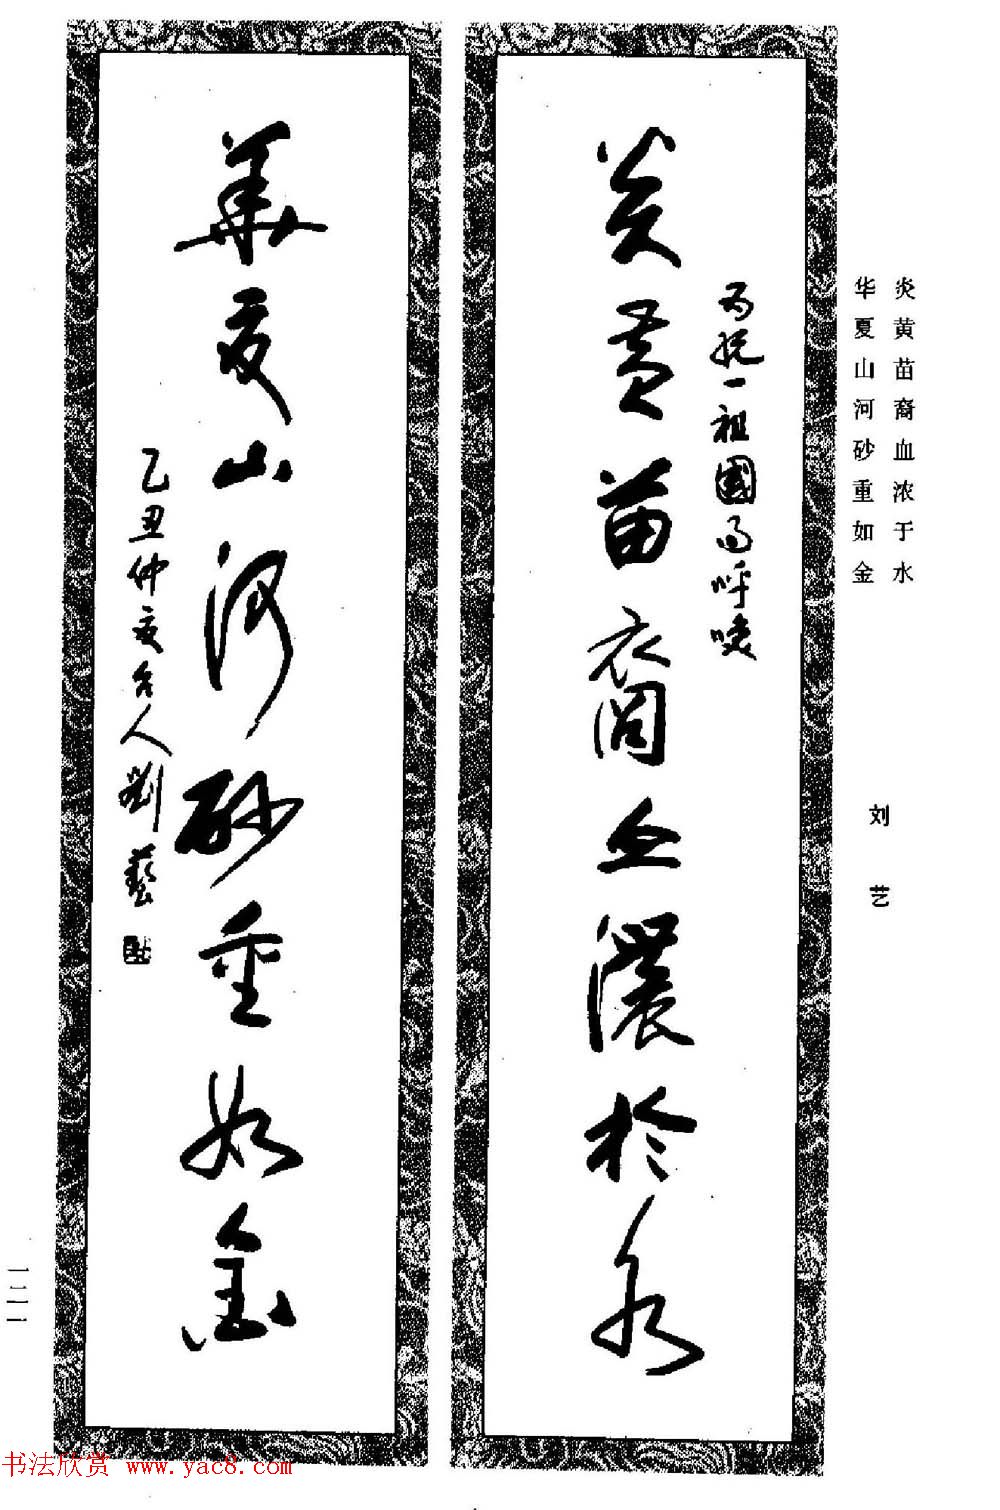 炎黄苗裔血浓于水
华夏山河砂重如金
刘艺
为统一祖國而呼唤
炎黄苗裔血濃於水
華夏山河砂重如金
乙丑仲夏台人劉藝
一二一
书法欣赏 www.yac8.com